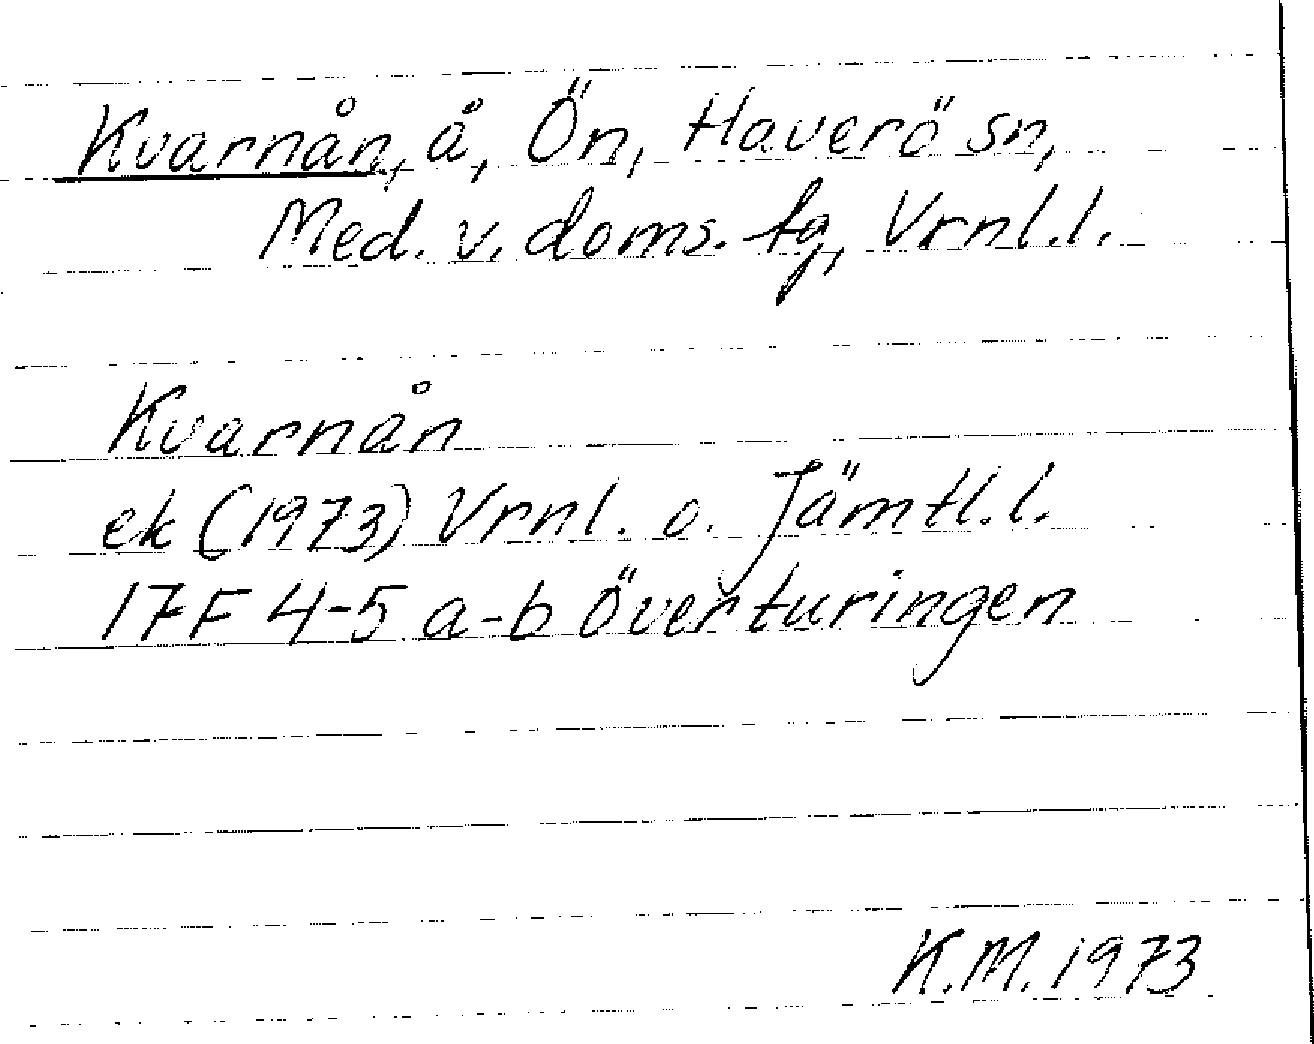 Kvarnån, å, Ön, Haverö sn,
Med. v. doms. tg, Vrnl.l.
Kvarnån
ek (1973) Vrnl. o. Jämtl.l.
17F 4-5 a-b Överturingen
K.M. 1973